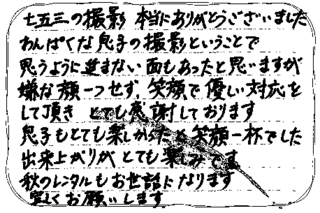 七五三の撮影 本当にありがとうございました
わんぱくな息子の撮影ということで
思うように進まない面もあったと思いますが
嫌な顔一つせず、笑顔で優しい対応を
して頂き とても感謝しております
息子もとても楽しかったと笑顔一杯でした
出来上がりがとても楽しみです
秋のレンタルもお世話になります
宜しくお願いします